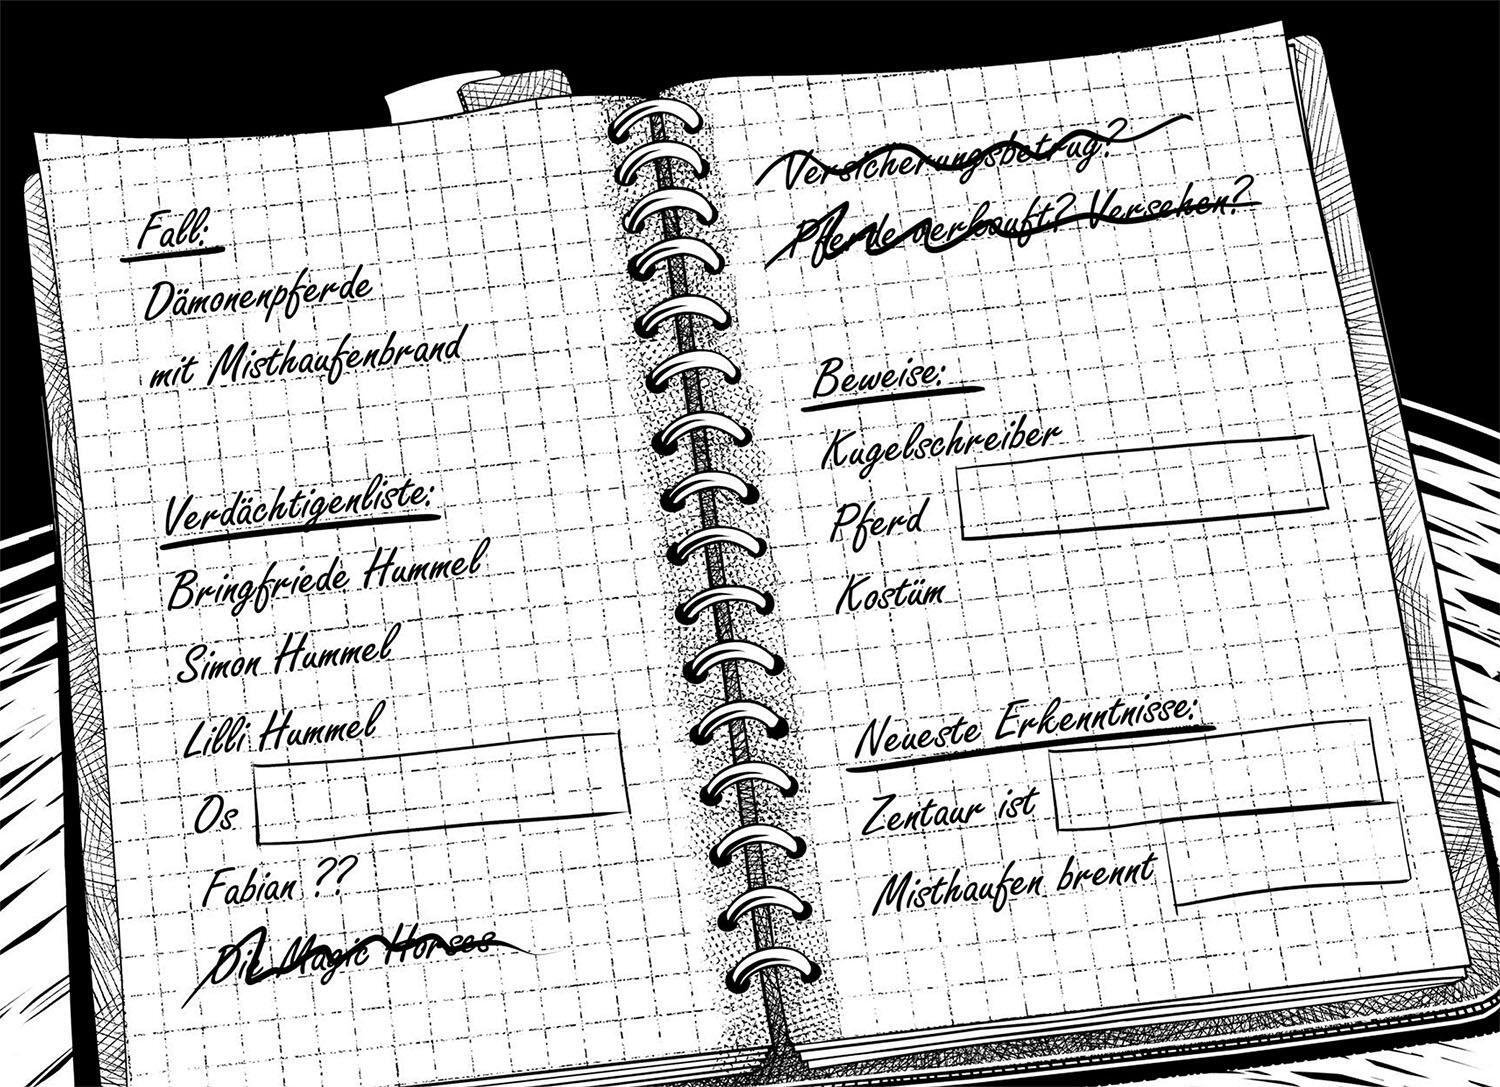 Fall:
Dämonenpferde
mit Misthaufenbrand
Verdächtigenliste:
Bringfriede Hummel
Simon Hummel
Lilli Hummel
Os
Fabian ??
Die Magic Horses
Versicherungsbetrug?
Pferde verkauft? Versehen?
Beweise:
Kugelschreiber
Pferd
Kostüm
Neueste Erkenntnisse:
Zentaur ist
Misthaufen brennt